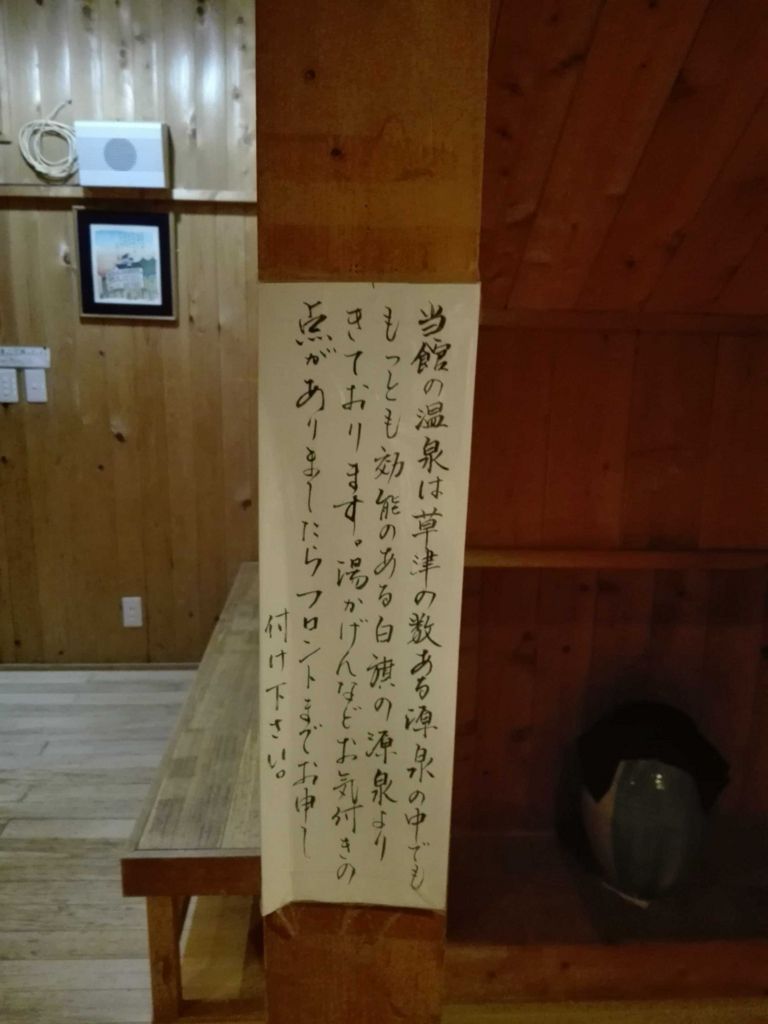 当館の温泉は草津の数ある源泉の中でも
もっとも効能のある白旗の源泉より
きております。湯かげんなどお気付きの
点がありましたらフロントまでお申し
付け下さい。